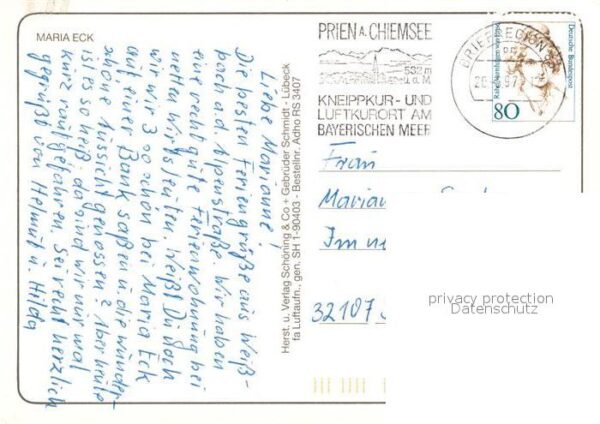 MARIA ECK
Liebe Marianne!
Die besten Feriengrüße aus Weiß-
bach a.d. Alpenstraße. Wir haben
eine recht gute Ferienwohnung bei
netten Wirtsleuten. Weißt Du noch
wie wir 3 schon bei Maria Eck
auf einer Bank saßen u. die wunder-
schöne Aussicht genossen? Aber heute
ist es so heiß, da sind wir nur mal
kurz raufgefahren. Sei recht herzlich
gegrüßt von Helmut u. Hilda
Herst. u. Verlag Schöning & Co + Gebrüder Schmidt - Lübeck
fa Luftaufn., gen. SH 1-90403 - Bestellnr. Adho RS 3407
PRIEN A. CHIEMSEE
532 m
ü. d. M.
KNEIPPKUR- UND
LUFTKURORT AM
BAYERISCHEN MEER
Deutsche Bundespost
80
Frau
32107
privacy protection
Datenschutz